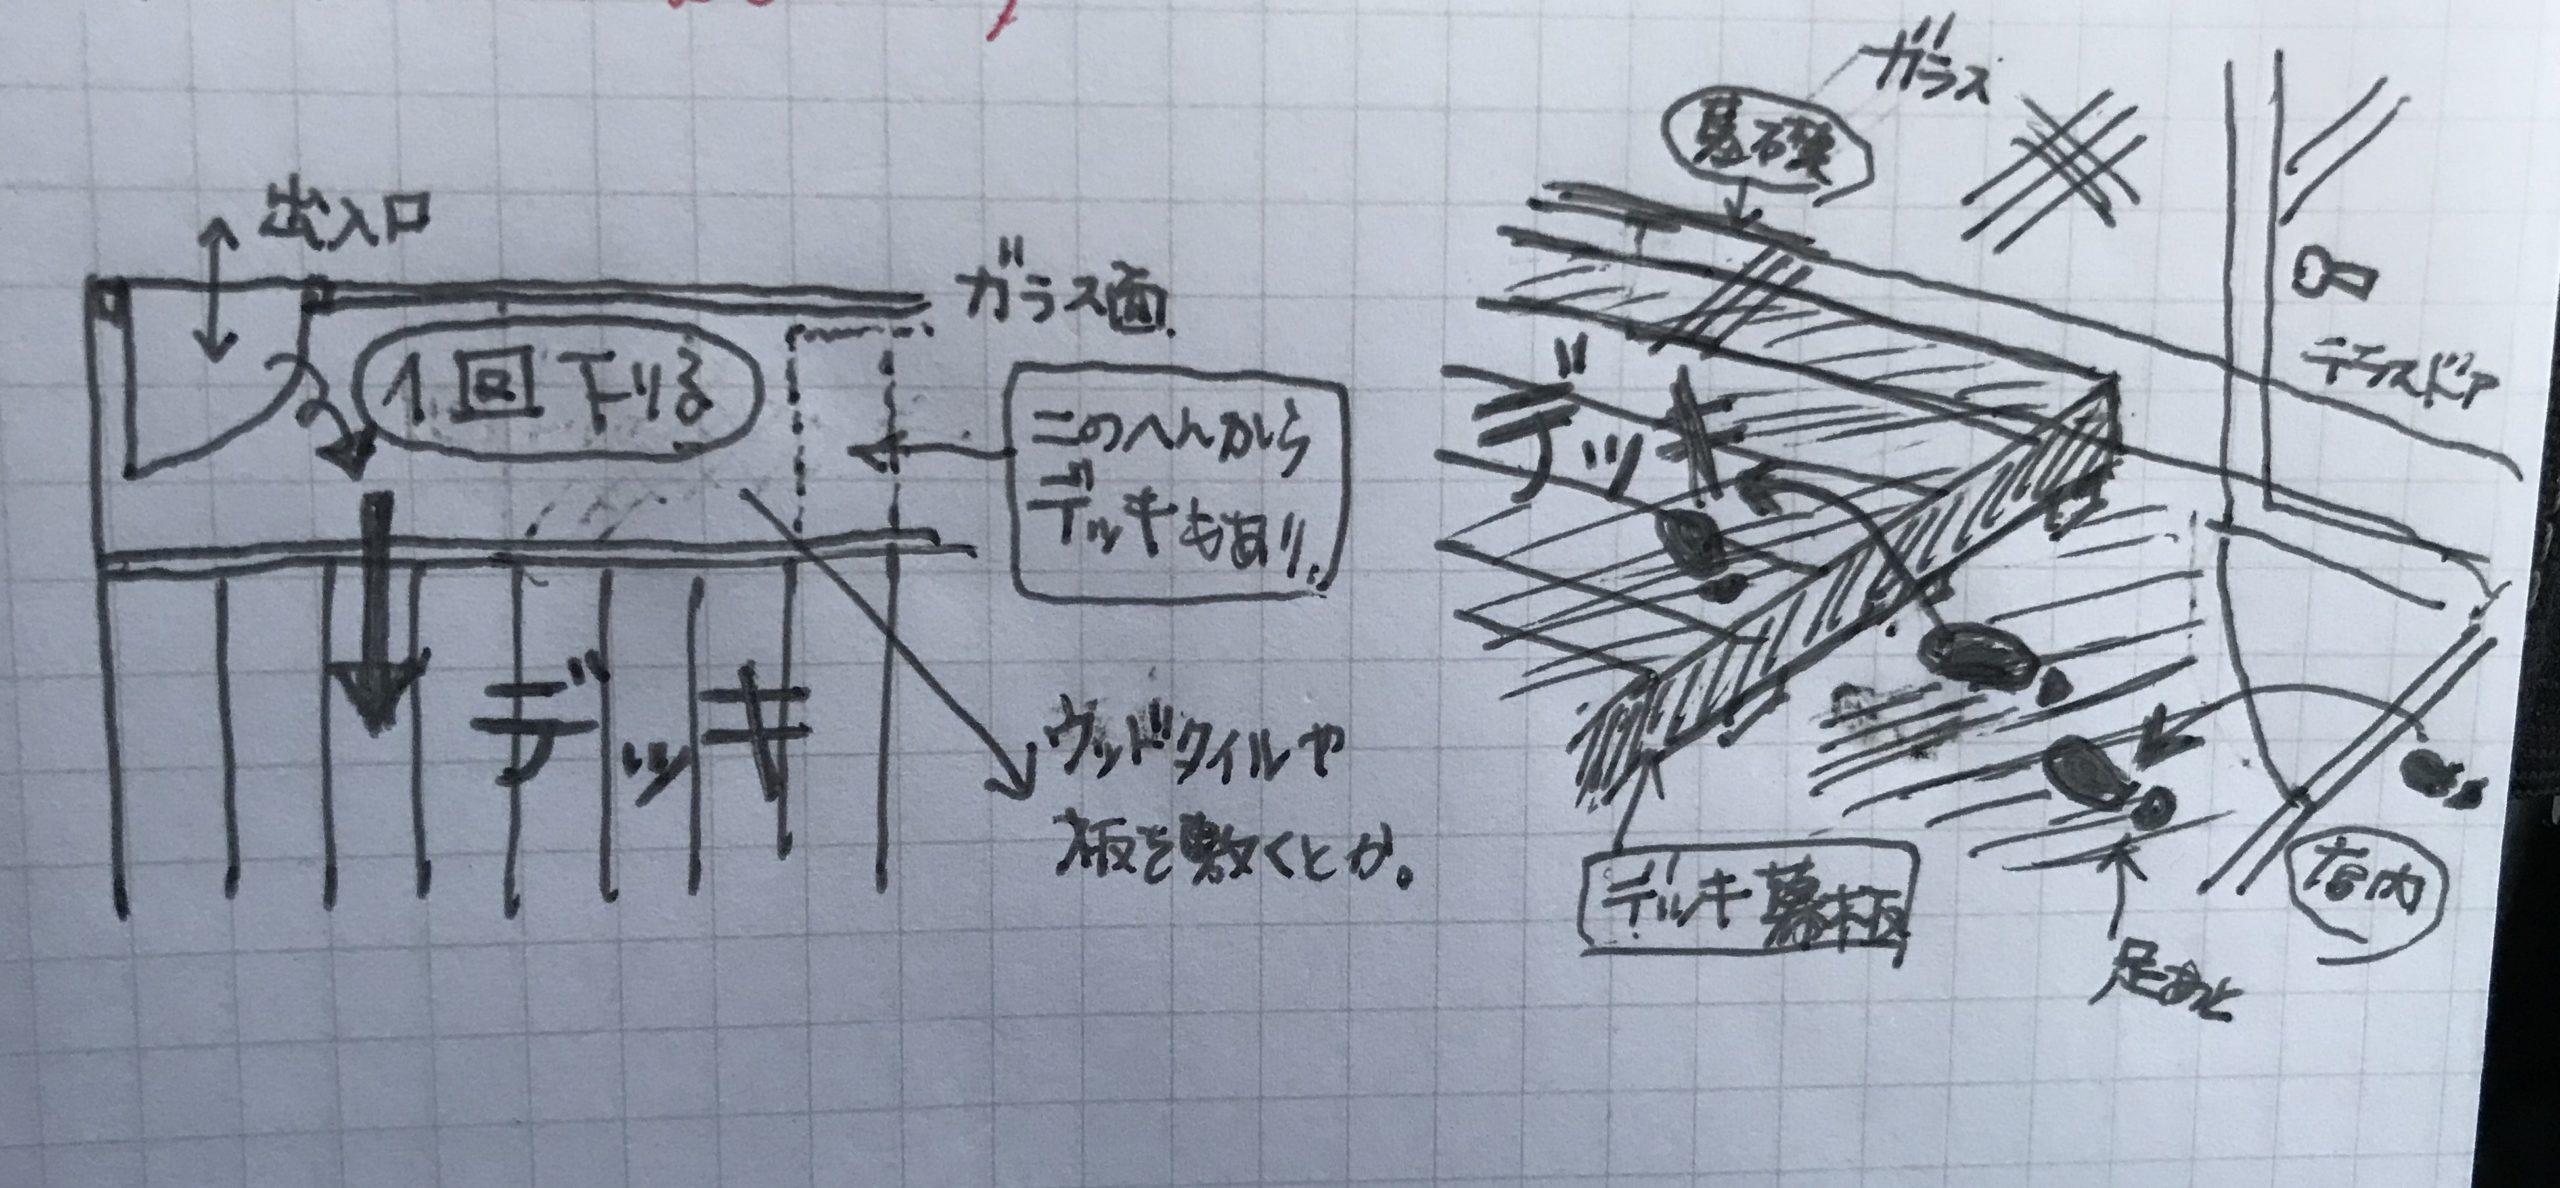 出入口
ガラス面
1回下りる
このへんから
デッキもあり。
デッキ
ウッドタイルや
板を敷くとか。
ガラス
基石積
デッキ
テラスドア
デッキ幕板
店内
足あと